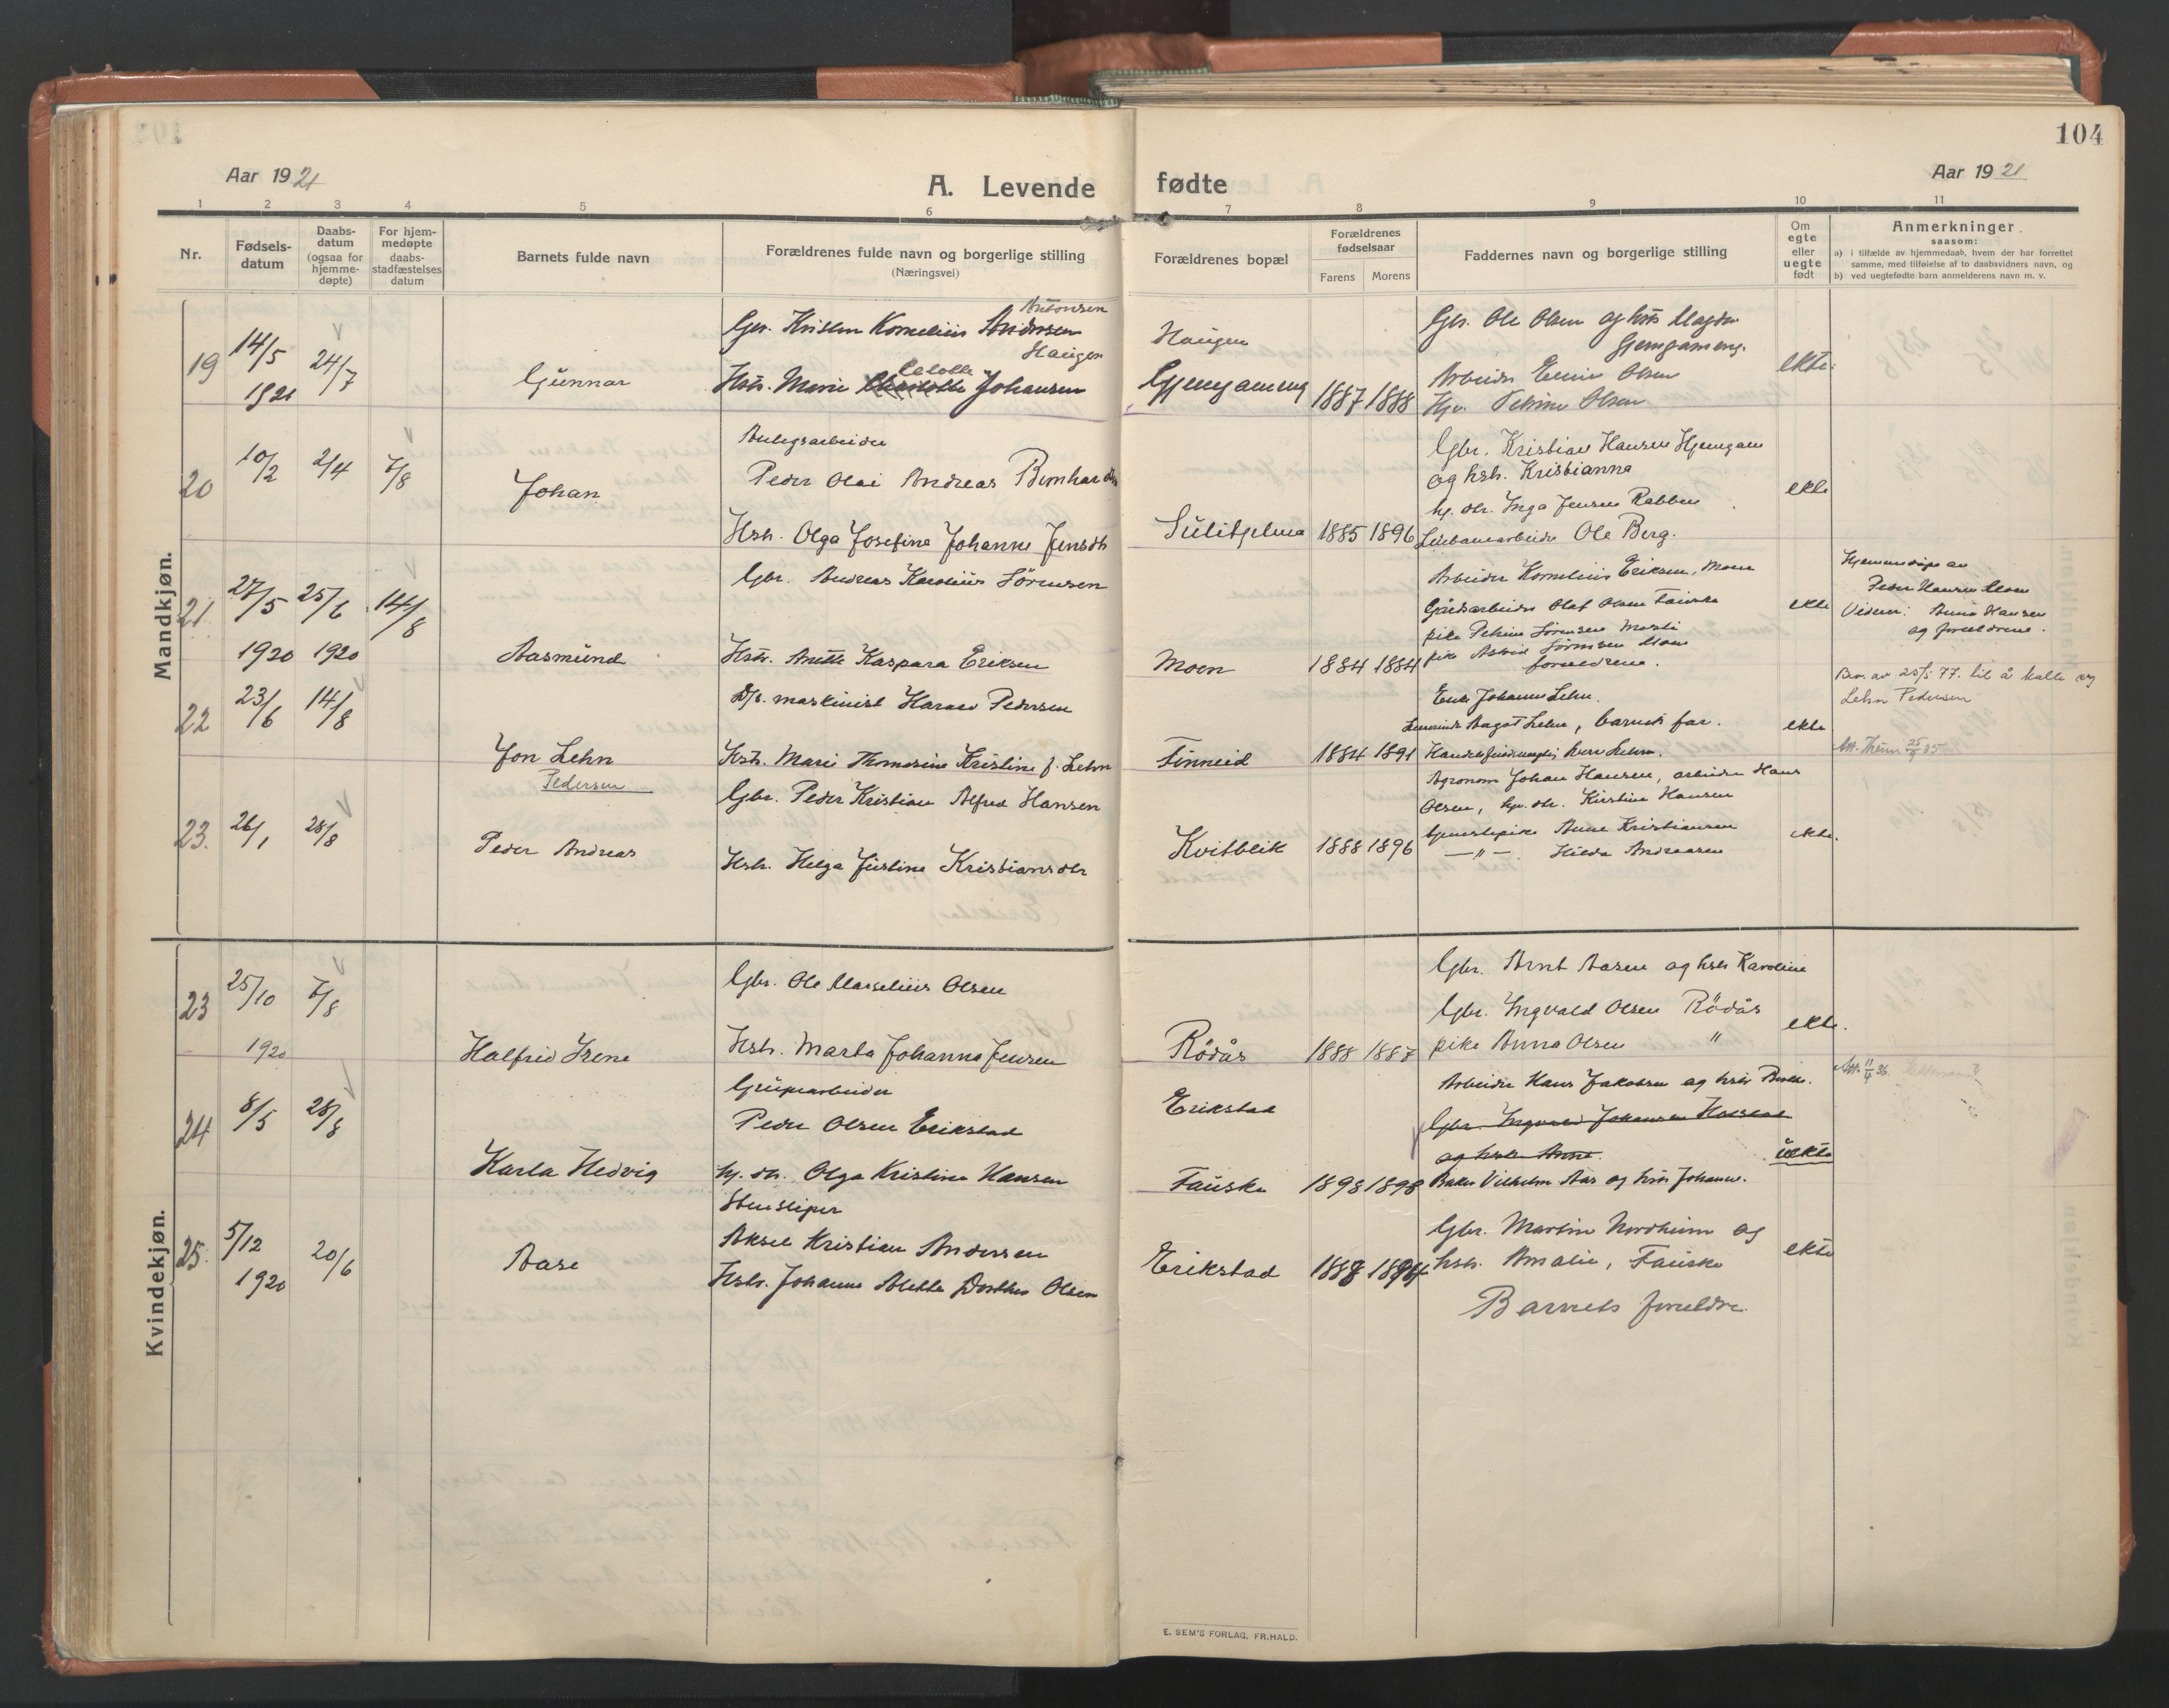 104
Aar 1921
A. Levende fødte
Aar 1921
1 2 3 4 5 6 7 8 9 10 11
Nr.
Fødsels-
datum
Daabs-
datum
(ogsaa for
hjemme-
døpte)
For hjem-
medøpte
daabs-
stadfæstelses
datum
Barnets fulde navn
Forældrenes fulde navn og borgerlige stilling
(Næringsvei)
Forældrenes bopæl
Forældrenes
fødselsaar
Farens Morens
Faddernes navn og borgerlige stilling
Om
egte
eller
uegte
født
Anmerkninger
saasom:
a) i tilfælde av hjemmedaab, hvem der har forrettet
samme, med tilføielse af to daabsvidners navn, og
b) ved uegtefødte barn anmelderens navn m. v.
Mandkjøn.
19
14/5
1921
24/7
Gunnar
Antonsen
Gbr. Kristen Kornelius Andersen
Haugen
Hstr. Marie Johansen
Haugen
Gjemgameng
1887 1888
Gbr. Ole Olsen og hstr Magda
Gjemgameng.
Arbeider Olsen
Petrine Olsen
ekte
20
10/2
2/4
7/8
Johan
Anlegsarbeider
Peder Olai Andreas
Hstr. Olga Josefine Johanne Jensdtr
Sulitjelma
1885 1896
Gbr. Kristian Hansen Hjemgam
og hstr. Kristianna
hj. dtr. Inga Jensen Rabben
Ole Berg.
ekte
21
27/5
1920
25/6
1920
14/8
Aasmund
Gbr. Andreas Karolius Sörensen
Hstr. Anette Kaspara Eriksen
Moen
1884 1884
Arbeider Kornelius Eriksen, Moen
Gårdsarbeider Olaf Olsen Fauske
pike Petrine Sörensen
pike Astrid Sörensen Moen
foreldrene.
ekte
Hjemmedöpt av
Peder Hansen Moen
Vidner: Anna Hansen
og foreldrene.
22
23/6
14/8
Jon Lehn
Pedersen
D/s. maskinist Harald Pedersen
Hstr. Marie Thomasine Kristine f. Lehn
Finneid
1884 1891
Enke Johanne Lehn.
Aagot Lehn, barnets far.
Lehn.
ekte
Bev. av 25/5 77. til å kalle seg
Lehn Pedersen
Att. 25/9 35
23.
26/1
28/8
Peder Andreas
Gbr. Peder Kristian Alfred Hansen
Hstr. Helga Justine Kristiansdtr
Kvitblik
1888 1896
Agronom Johan Hansen, arbeider Hans
Olsen, hj. dtr. Kirstine Hansen
tjenestepike Anne Kristiansen
—"—. Hilda Andreasen
ekte.
Kvindekjøn.
23
25/10
1920
7/8
Halfrid Irene
Gbr. Ole Marselius Olsen
Hstr. Marta Johanna Jensen
Rödås
1888 1887
Gbr. Arnt Aasen og hstr Karoline
Gbr. Ingvald Olsen Rödås
pike Anna Olsen "
ekte.
Att. 11/4 36.
24
8/5
28/8
Karla Hedvig
Grubearbeider
Peder Olsen Erikstad
hj. dtr. Olga Kristine Hansen
Erikstad
Fauske
1898 1898
Arbeider Hans Jakobsen og hstr
Gbr. Ingvald Johansen
og hstr Anne.
Baker Vilhelm Aas og hstr Johanne.
uekte
25.
5/12
1920
20/6
Aase
Stensliper
Aksel Kristian Andersen
Hstr. Johanne Aletta Dorthea Olsen
Erikstad
Gbr. Martin Nordheim og
hstr. Amalie, Fauske
Barnets foreldre.
ekte
E. SEM'S FORLAG, FR.HALD.